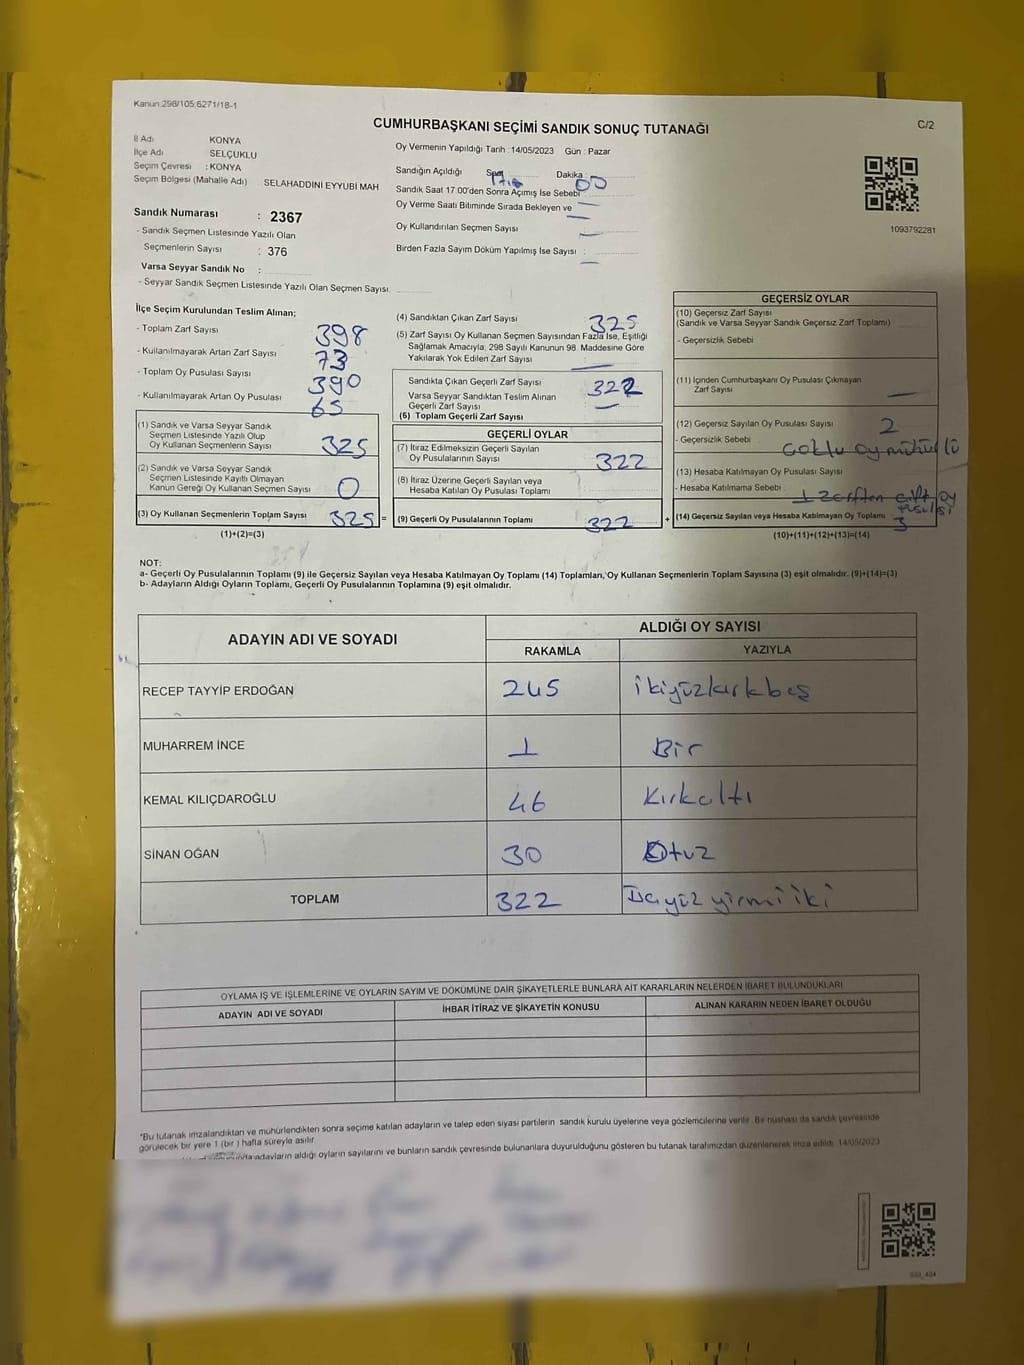 Kanun:298/105;6271/18-1
CUMHURBAŞKANI SEÇİMİ SANDIK SONUÇ TUTANAĞI
C/2
İl Adı KONYA
İlçe Adı SELÇUKLU
Seçim Çevresi : KONYA
Seçim Bölgesi (Mahalle Adı) SELAHADDINI EYYUBI MAH
Sandık Numarası : 2367
- Sandık Seçmen Listesinde Yazılı Olan
Seçmenlerin Sayısı : 376
Varsa Seyyar Sandık No :
- Seyyar Sandık Seçmen Listesinde Yazılı Olan Seçmen Sayısı:
Oy Vermenin Yapıldığı Tarih :14/05/2023 Gün : Pazar
Sandığın Açıldığı Saat Dakika: 00
Sandık Saat 17:00'den Sonra Açımış İse Sebebi
Oy Verme Saati Bitiminde Sırada Bekleyen ve
Oy Kullandırılan Seçmen Sayısı
Birden Fazla Sayım Döküm Yapılmış İse Sayısı :
1093792281
İlçe Seçim Kurulundan Teslim Alınan;
- Toplam Zarf Sayısı 398
- Kullanılmayarak Artan Zarf Sayısı 73
- Toplam Oy Pusulası Sayısı 390
- Kullanılmayarak Artan Oy Pusulası 65
(1) Sandık ve Varsa Seyyar Sandık
Seçmen Listesinde Yazılı Olup
Oy Kullanan Seçmenlerin Sayısı 325
(2) Sandık ve Varsa Seyyar Sandık
Seçmen Listesinde Kayıtlı Olmayan
Kanun Gereği Oy Kullanan Seçmen Sayısı 0
(3) Oy Kullanan Seçmenlerin Toplam Sayısı 325 =
(1)+(2)=(3)
(4) Sandıktan Çıkan Zarf Sayısı 325
(5) Zarf Sayısı Oy Kullanan Seçmen Sayısından Fazla İse, Eşitliği
Sağlamak Amacıyla; 298 Sayılı Kanunun 98. Maddesine Göre
Yakılarak Yok Edilen Zarf Sayısı
Sandıkta Çıkan Geçerli Zarf Sayısı 322
Varsa Seyyar Sandıktan Teslim Alınan
Geçerli Zarf Sayısı
(6) Toplam Geçerli Zarf Sayısı
GEÇERLİ OYLAR
(7) İtiraz Edilmeksizin Geçerli Sayılan
Oy Pusulalarının Sayısı 322
(8) İtiraz Üzerine Geçerli Sayılan veya
Hesaba Katılan Oy Pusulası Toplamı
(9) Geçerli Oy Pusulalarının Toplamı 322 +
GEÇERSİZ OYLAR
(10) Geçersiz Zarf Sayısı
(Sandık ve Varsa Seyyar Sandık Geçersiz Zarf Toplamı)
- Geçersizlik Sebebi
(11) İçinden Cumhurbaşkanı Oy Pusulası Çıkmayan
Zarf Sayısı
(12) Geçersiz Sayılan Oy Pusulası Sayısı 2
- Geçersizlik Sebebi çoklu oy mühürlü
(13) Hesaba Katılmayan Oy Pusulası Sayısı
- Hesaba Katılmama Sebebi 1 zarftan çift oy
pusulası
(14) Geçersiz Sayılan veya Hesaba Katılmayan Oy Toplamı 3
(10)+(11)+(12)+(13)=(14)
NOT:
a- Geçerli Oy Pusulalarının Toplamı (9) ile Geçersiz Sayılan veya Hesaba Katılmayan Oy Toplamı (14) Toplamları, Oy Kullanan Seçmenlerin Toplam Sayısına (3) eşit olmalıdır. (9)+(14)=(3)
b- Adayların Aldığı Oyların Toplamı, Geçerli Oy Pusulalarının Toplamına (9) eşit olmalıdır.
ADAYIN ADI VE SOYADI
ALDIĞI OY SAYISI
RAKAMLA YAZIYLA
RECEP TAYYİP ERDOĞAN 245 ikiyüzkırkbeş
MUHARREM İNCE 1 Bir
KEMAL KILIÇDAROĞLU 46 Kırkaltı
SİNAN OĞAN 30 Otuz
TOPLAM 322 yirmiiki
OYLAMA İŞ VE İŞLEMLERİNE VE OYLARIN SAYIM VE DÖKÜMÜNE DAİR ŞİKAYETLERLE BUNLARA AİT KARARLARIN NELERDEN İBARET BULUNDUKLARI
ADAYIN ADI VE SOYADI İHBAR İTİRAZ VE ŞİKAYETİN KONUSU ALINAN KARARIN NEDEN İBARET OLDUĞU
*Bu tutanak imzalandıktan ve mühürlendikten sonra seçime katılan adayların ve talep eden siyasi partilerin sandık kurulu üyelerine veya gözlemcilerine verilir. Bir nüshası da sandık çevresinde
görülecek bir yere 1 (bir ) hafta süreyle asılır.
adayların aldığı oyların sayılarını ve bunların sandık çevresinde bulunanlara duyurulduğunu gösteren bu tutanak tarafımızdan düzenlenerek imza edildi. 14/05/2023